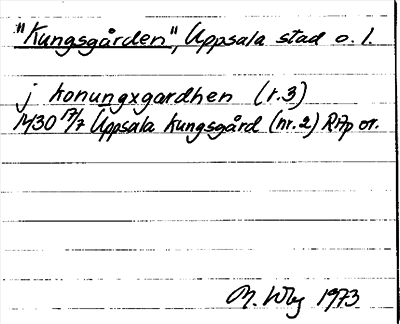 "Kungsgården", Uppsala stad o. l.
j konungxgardhen (r.3)
1430 17/7 Uppsala Kungsgård (nr.2) RAp or.
M. Wbg 1973